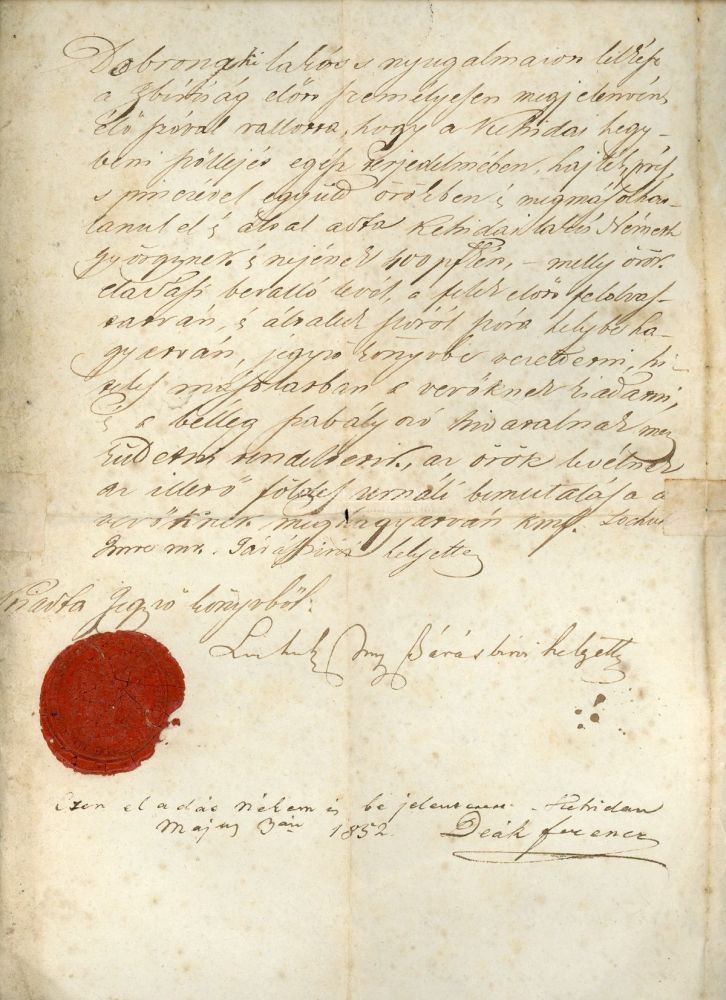 Dobronaki lakós s nyugalmazott lelkész
a Zbiróság előtt személyesen megjelenvén
élő szóval vallotta, hogy a Kehidai hegy-
beni szöllejét egész terjedelmében, hajlék, prés,
s pinczével együtt örökben és megmásolhat-
lanul el és által adta Kehidai lakós Németh
Györgynek és nejének 400 pftén, – melly örök
eladási bevalló levél, a felek előtt felolvas-
tatván, és általuk szóról szóra helyben ha-
gyatván, jegyző könyvbe vezettetni, hi-
teles másolatban a vevőknek kiadatni,
és a bélleg szabályozó hivatalnak meg
küldetni rendeltetik, az örök levélnek
az illető földes urnáli bemutatása a
vevőknek meghagyatván kmf.
Imre mk. Járásbirói helyettes
Kiadta Jegyző könyvből:
Járásbirói helyettes
Ezen eladás nékem is bé jelentetett. Kehidan
Május 3án 1852. Deák Ferencz